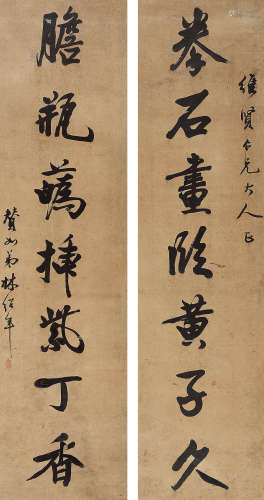 維賢仁兄大人正
拳石畫臨黃子久
膽瓶蘤插紫丁香
贊如弟林紹年